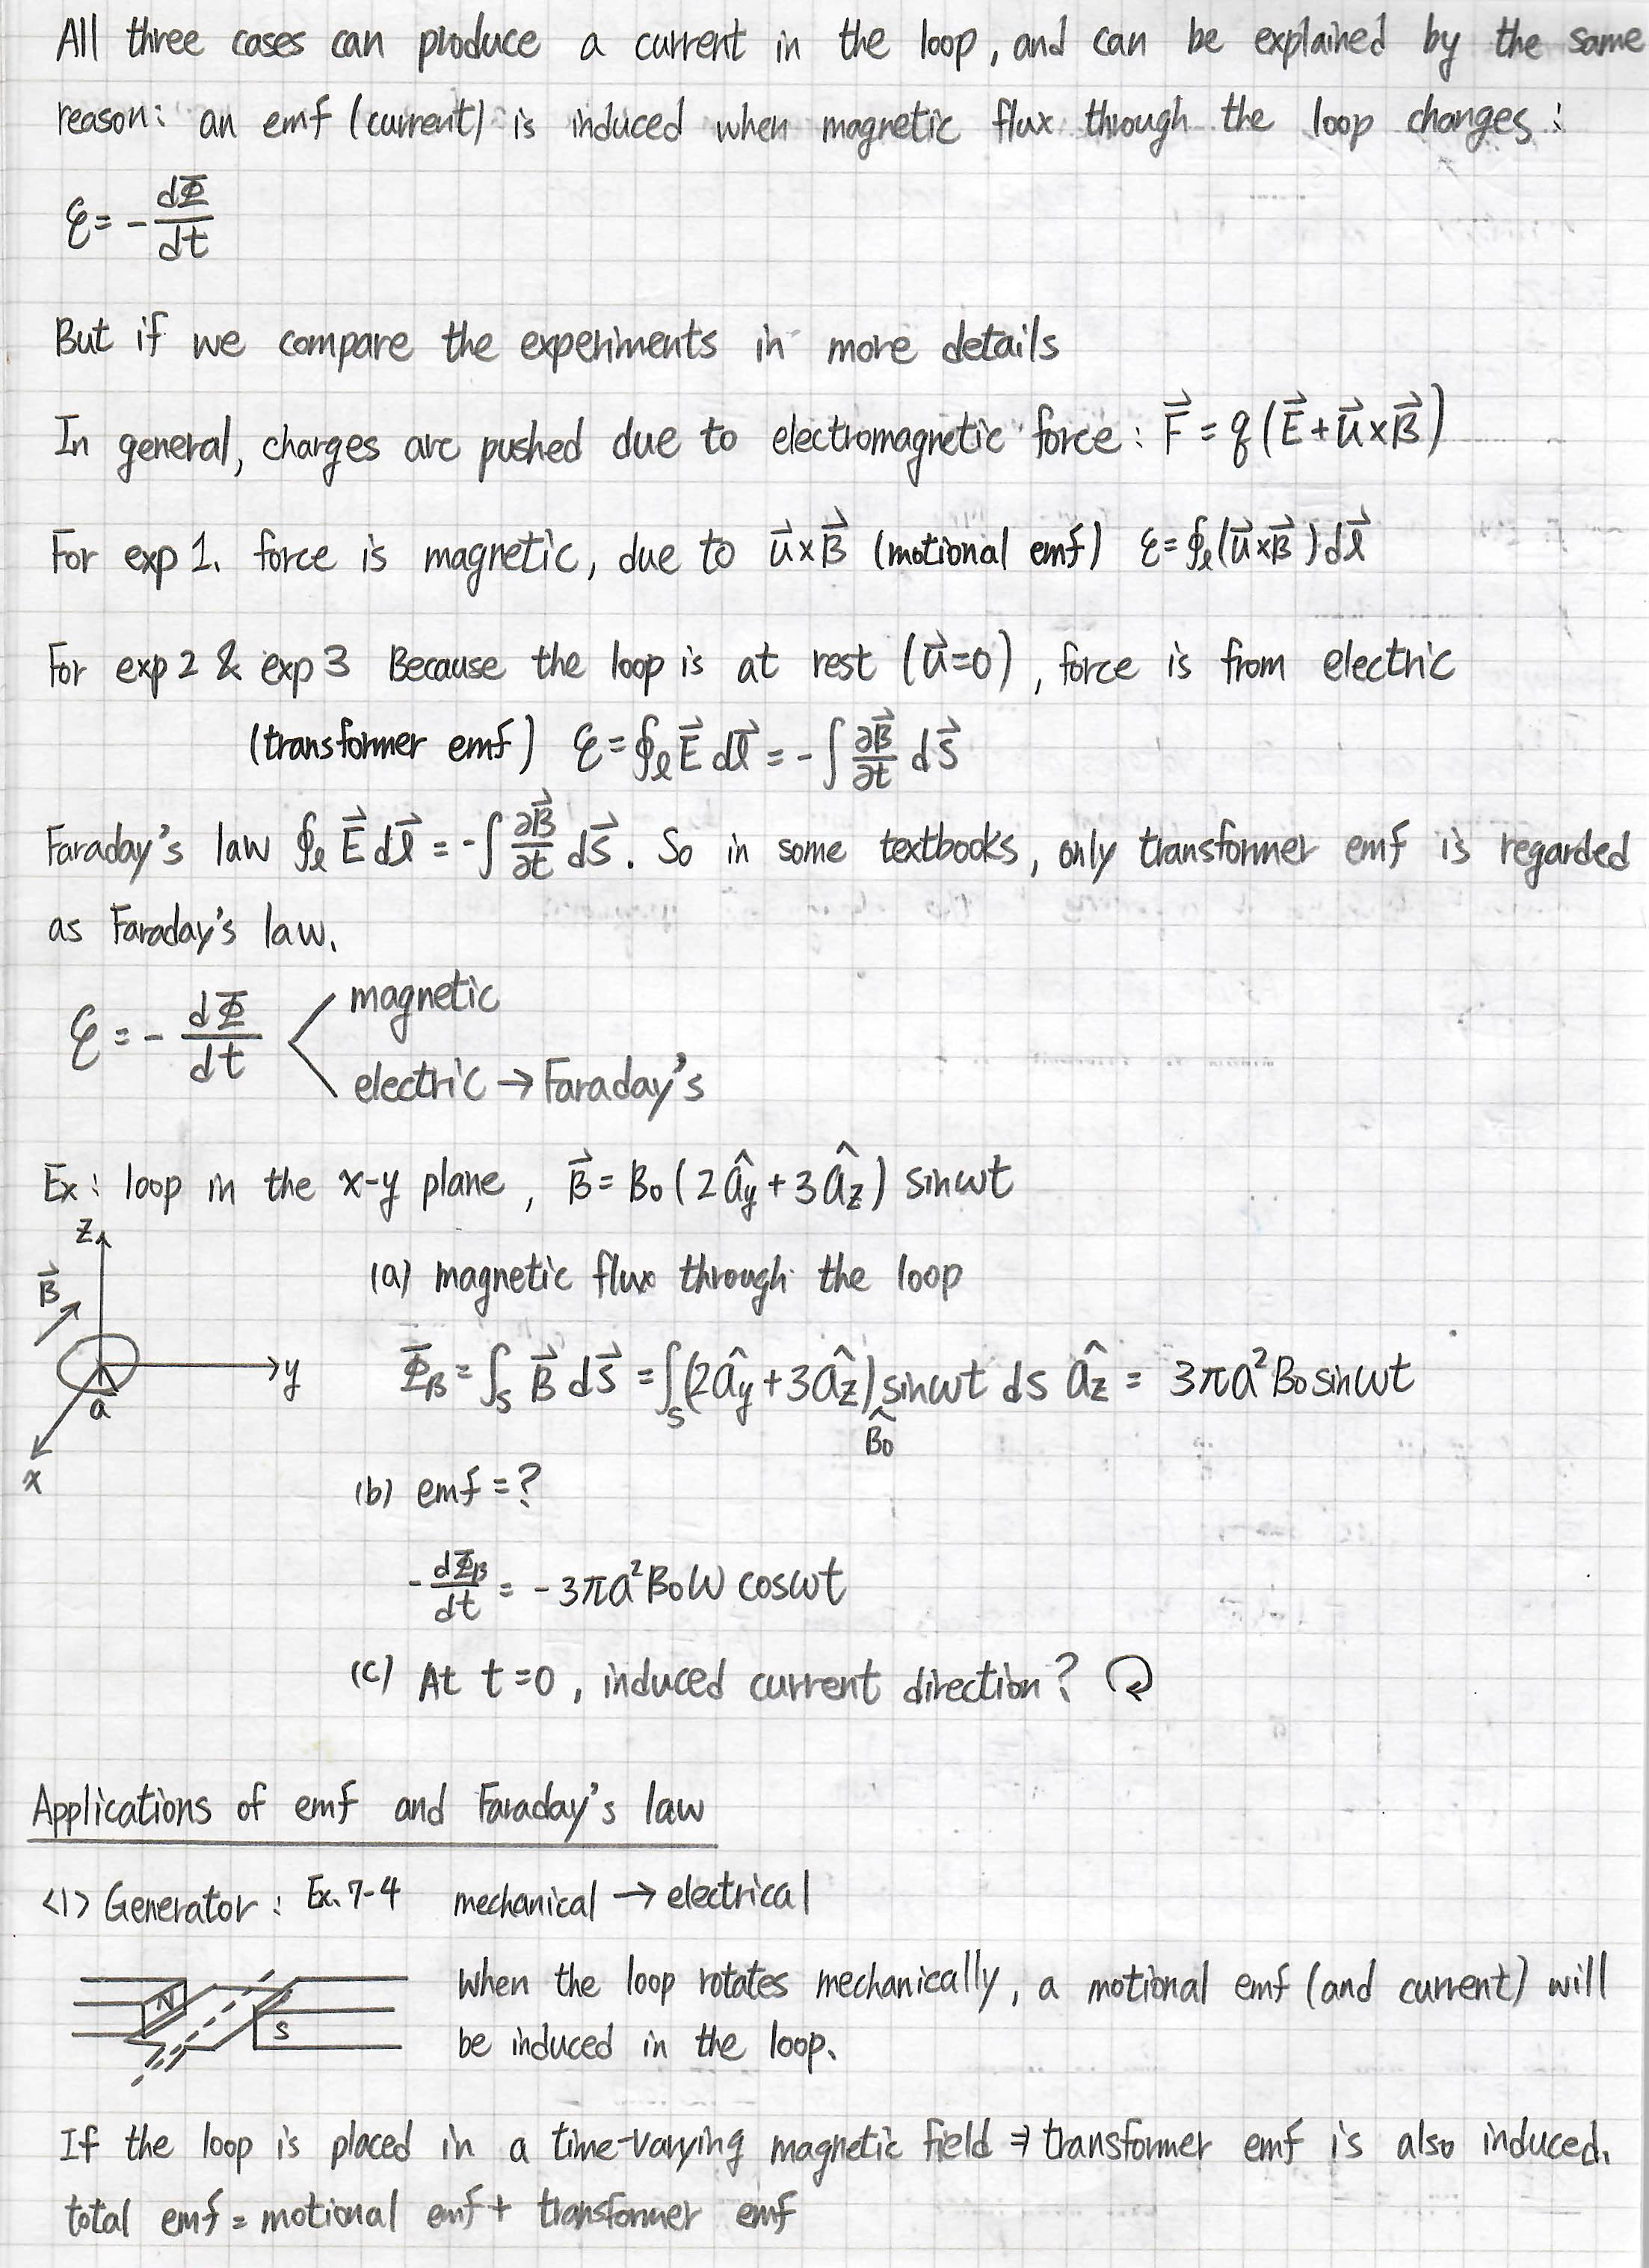 All three cases can produce a current in the loop, and can be explained by the same
reason: an emf (current) is induced when magnetic flux through the loop changes:
ℰ = - dΦ/dt
But if we compare the experiments in more details
In general, charges are pushed due to electromagnetic force: F⃗ = q(E⃗ + u⃗ × B⃗)
For exp 1. force is magnetic, due to u⃗ × B⃗ (motional emf) ℰ = ∮ₗ(u⃗ × B⃗) dl⃗
For exp 2 & exp 3 Because the loop is at rest (u⃗ = 0), force is from electric
(transformer emf) ℰ = ∮ₗ E⃗ dl⃗ = - ∫ ∂B⃗/∂t ds⃗
Faraday's law ∮ₗ E⃗ dl⃗ = - ∫ ∂B⃗/∂t ds⃗. So in some textbooks, only transformer emf is regarded
as Faraday's law.
ℰ = - dΦ/dt < magnetic
electric → Faraday's
Ex: loop in the x-y plane, B⃗ = B₀(2â_y + 3â_z) sinωt
z
B⃗
y
a
x
(a) magnetic flux through the loop
Φ_B = ∫_S B⃗ ds⃗ = ∫_S (2â_y + 3â_z) B₀ sinωt ds â_z = 3πa²B₀sinωt
(b) emf = ?
- dΦ_B/dt = - 3πa²B₀ω cosωt
(c) At t=0, induced current direction? ↻
Applications of emf and Faraday's law
<1> Generator: Ex. 7-4 mechanical → electrical
N
S
When the loop rotates mechanically, a motional emf (and current) will
be induced in the loop.
If the loop is placed in a time-varying magnetic field ⇒ transformer emf is also induced.
total emf = motional emf + transformer emf